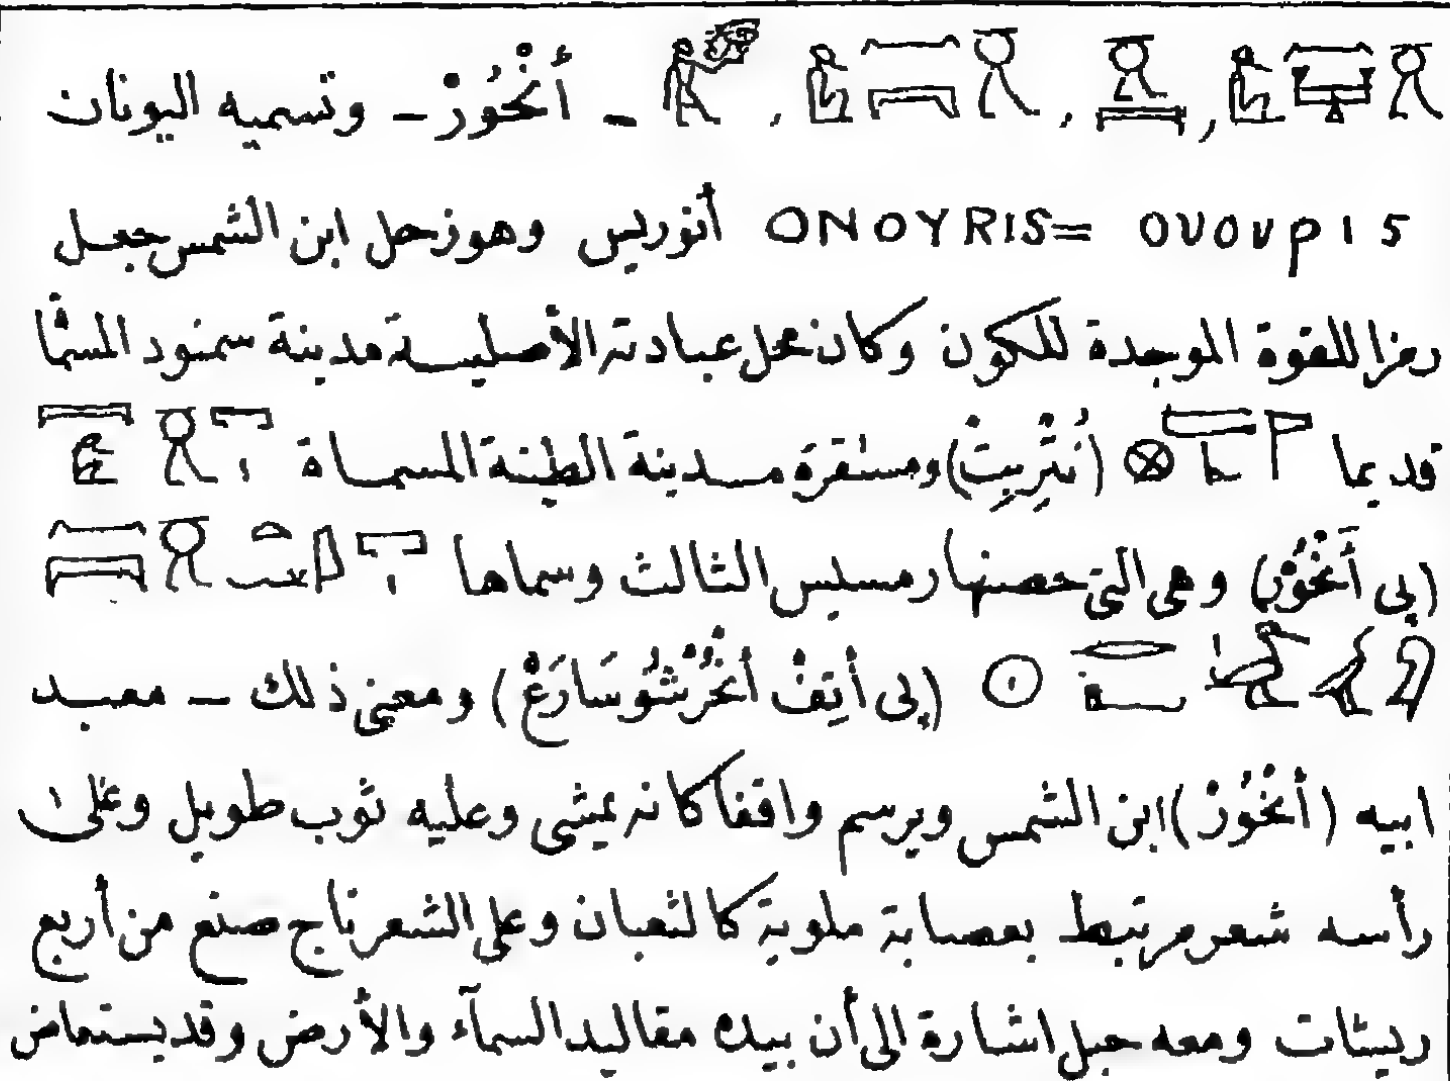 ـ أَنْحُورْ ـ وتسميه اليونان
ονουρις =ONOYRIS أنوريس وهو زحل ابن الشمس جعل
رمزا للقوة الموجدة للكون وكان محل عبادته الأصليــة مدينة سمنود المسمَّا
قديما (نُتْرِيتْ) ومستقرة مــدينة الطينــة المسمــاة
(پى أَنْحُوْر) وهى التى حصنها رمسيس الثالث وسماها
(پى أتِفْ أنْحُرْشُوسَارَعْ) ومعنى ذلك ـ معبــد
ابيه (أنْحُورْ) ابن الشمس ويرسم واقفا كانه يمشى وعليه ثوب طويل وعلى
رأسه شعر مرتبط بعصابة ملوية كالثعبان وعلى الشعر تاج صنع من أربع
ريشات ومعه حبل اشارة الى أن بيده مقاليد السمآء والأرض وقد يستعاض